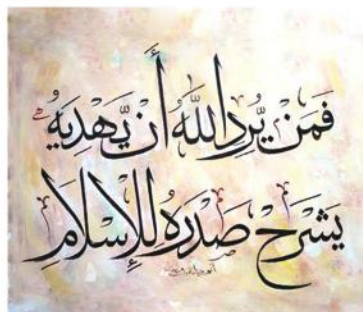 فَمَنْ يُرِدِ اللَّهُ أَنْ يَّهْدِيَهُ
يَشْرَحْ صَدْرَهُ لِلْإِسْلَامِ